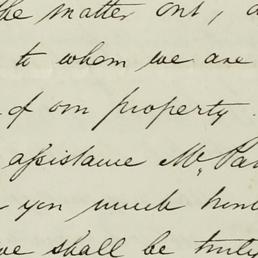 the matter out,
to whom we are
of our property.
assistance Mr. Par
you much
we shall be truly